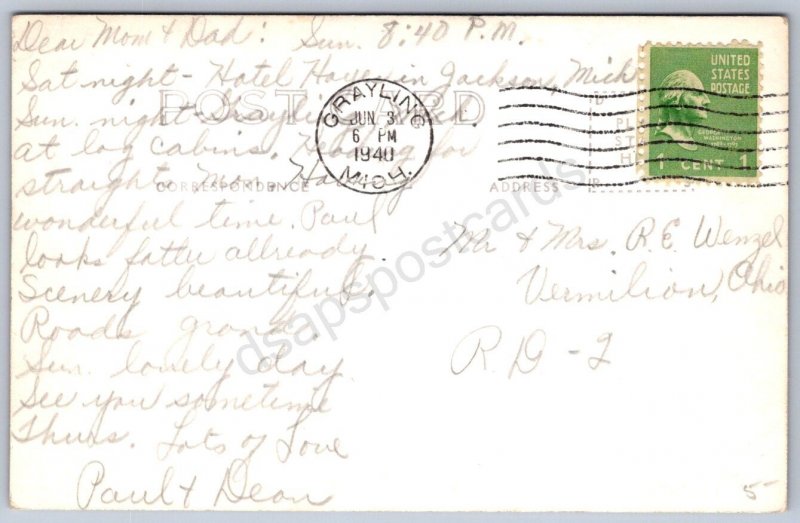 Dear Mom & Dad: Sun. 8:40 P.M.
Sat night - Hotel Hayes in Jackson, Mich
Sun. night - Grayling Mich.
at log cabins. Heading for
straight Mon. Having
wonderful time. Paul
looks fatter allready
Scenery beautiful.
Roads grand.
Sun. lovely day.
See you sometime
Thurs. Lots of Love
Paul & Dean
POST CARD
CORRESPONDENCE
ADDRESS
GRAYLING
JUN 3
6 PM
1940
MICH.
UNITED
STATES
POSTAGE
GEORGE
WASHINGTON
1 CENT 1
Mr & Mrs. R.E. Wenzel
Vermilion, Ohio
R.D-2
5-
dsapspostcards